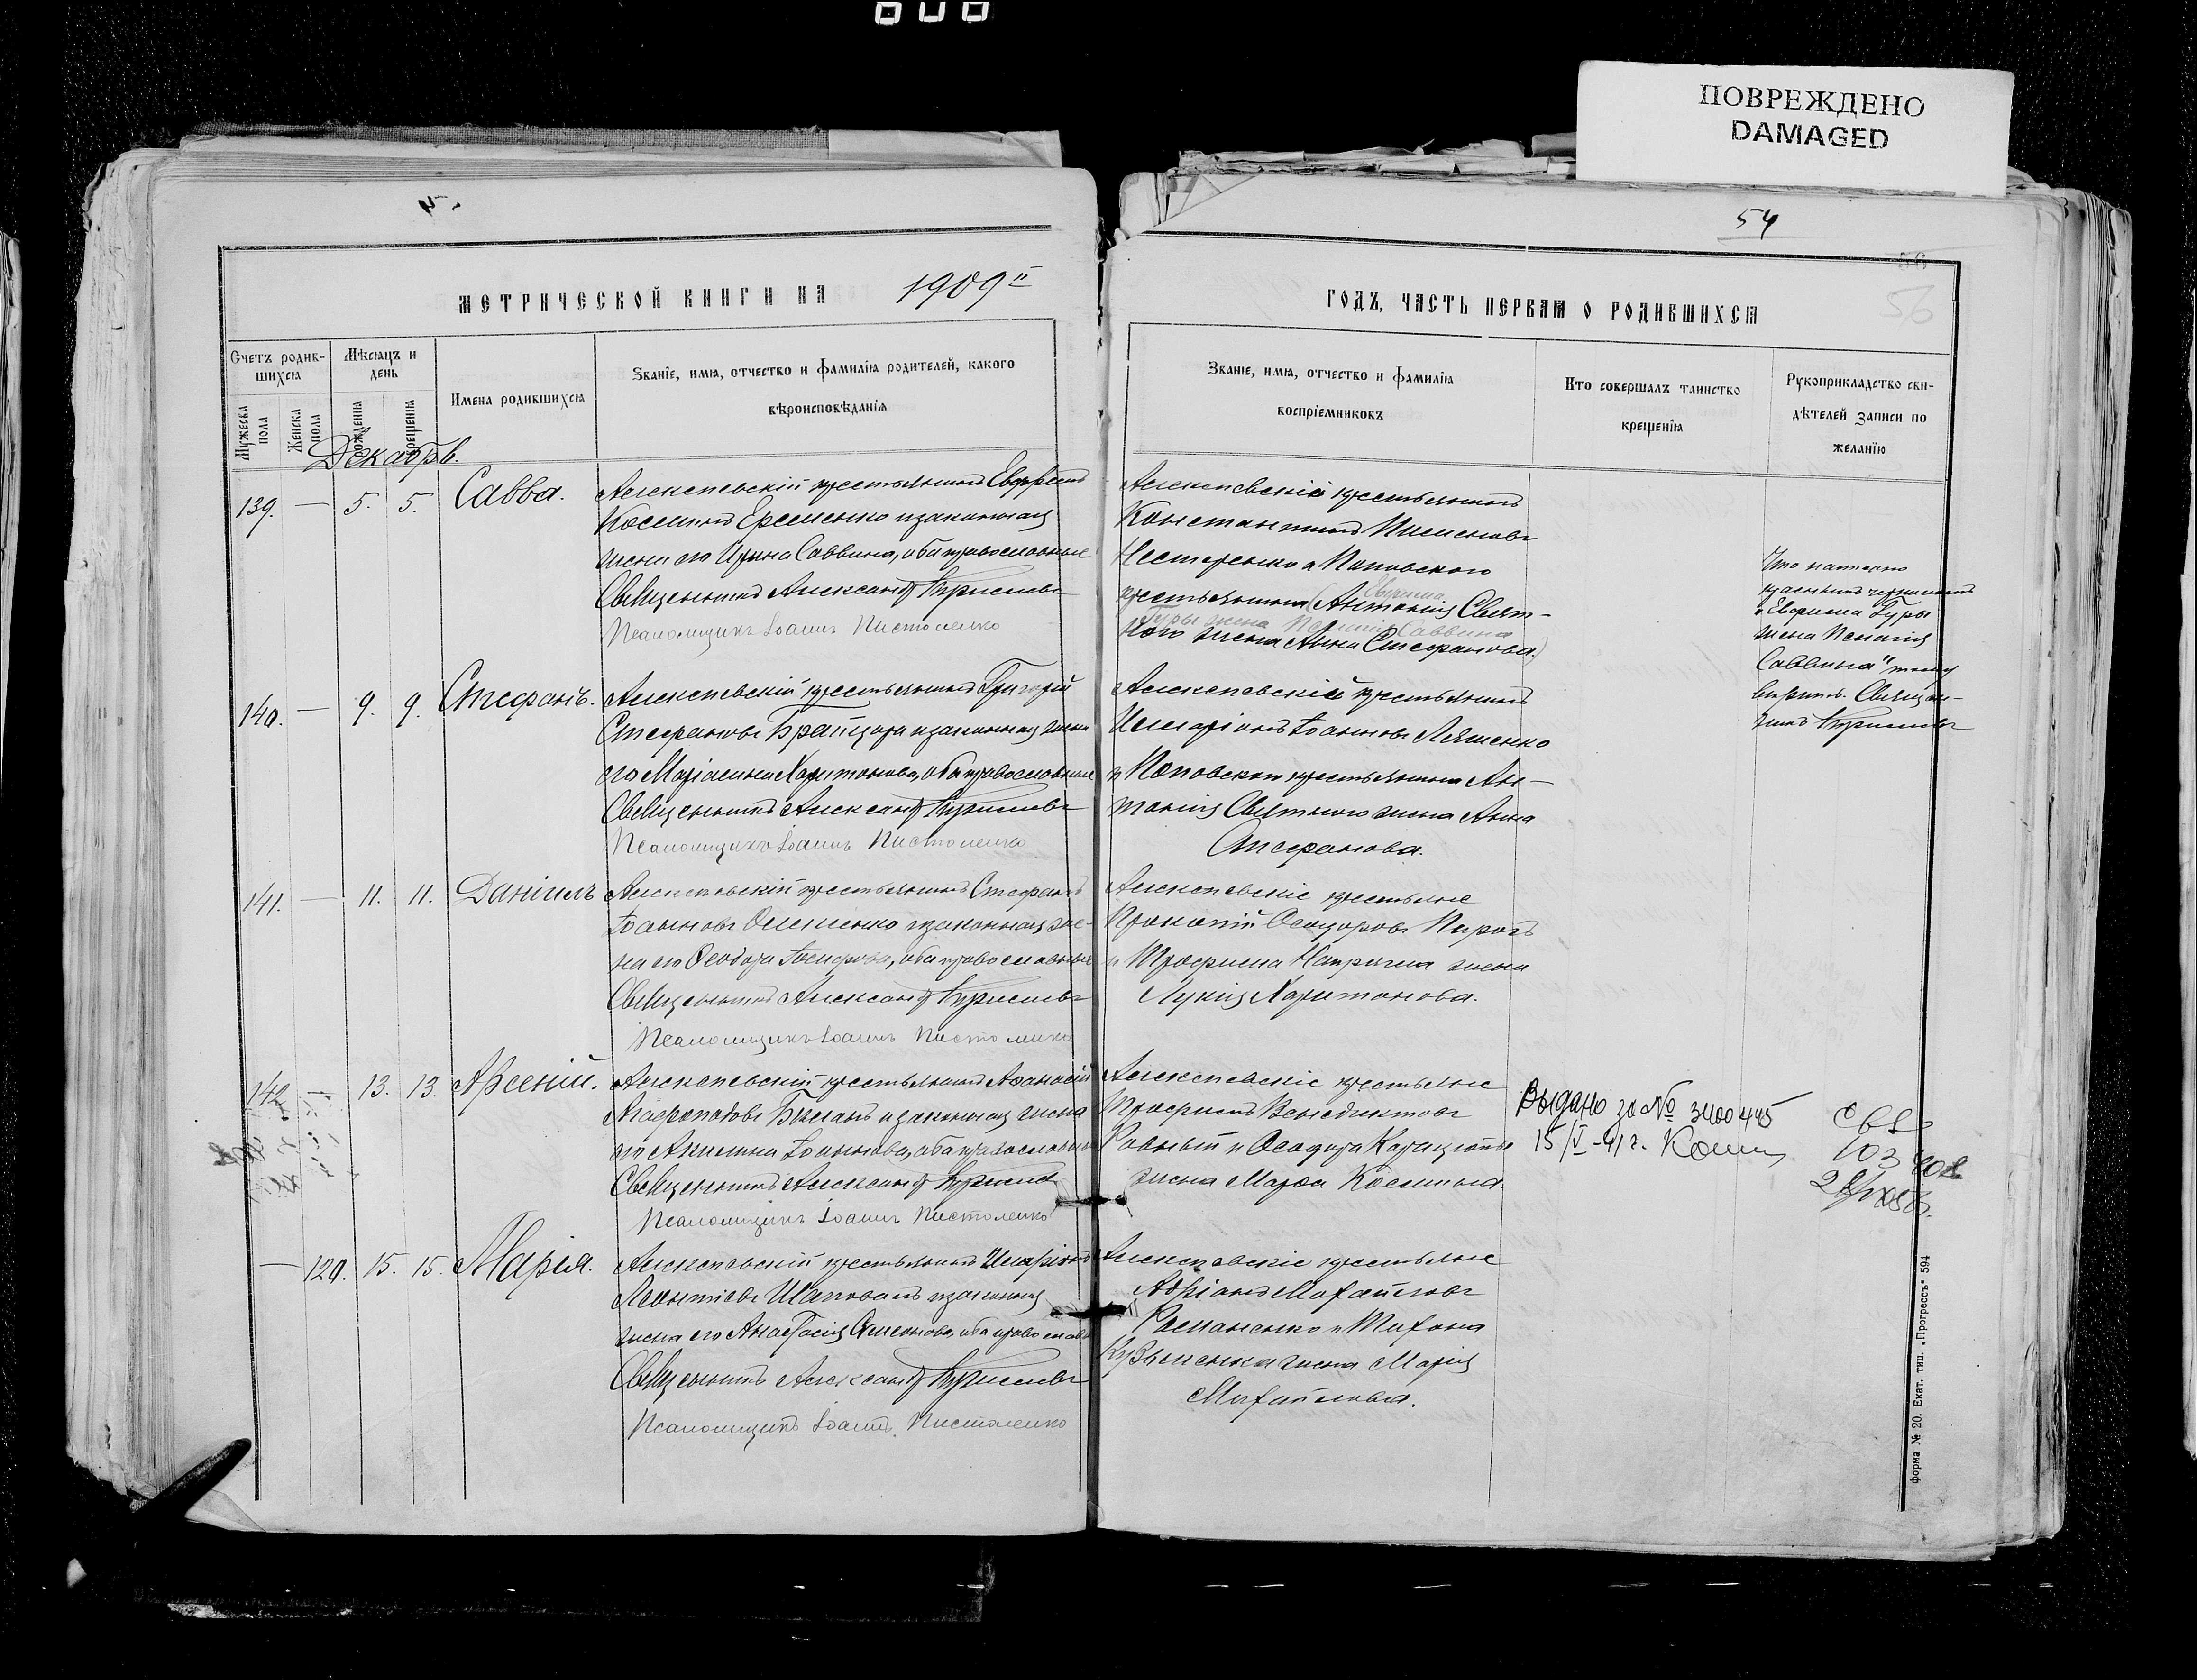 ПОВРЕЖДЕНО
DAMAGED
54
56
МЕТРИЧЕСКОЙ КНИГИ НА 1909й
ГОДЪ, ЧАСТЬ ПЕРВАЯ О РОДИВШИХСЯ
Счетъ родив-
шихся
Мужеска
пола
Женска
пола
Мѣсяцъ и
день
рожденія
крещенія
Имена родившихся
Званіе, имя, отчество и фамилія родителей, какого
вѣроисповѣданія
Званіе, имя, отчество и фамилія
воспріемниковъ
Кто совершалъ таинство
крещенія
Рукоприкладство сви-
дѣтелей записи по
желанію
Декабрь.
139. — 5. 5. Савва.
Алексѣевскій крестьянинъ
Косминъ Еременко и законная
жена его Ирина Саввина, оба православные
Священникъ Александръ
Псаломщикъ Іоаннъ Пистоленко
Алексѣевскій крестьянинъ
Константинъ Пименовъ
Нестеренко и Поповского
крестьянина (Антонія Свят-
ного жена Анна Стефанова.)
Ефрема
Гуры жена Пелагія Саввина
Что написано
красными чернилами
"Ефрема Гуры
жена Пелагія
Саввина" тому
вѣрить. Священ-
никъ
140. — 9. 9. Стефанъ.
Алексѣевскій крестьянинъ Григорій
Стефановъ и законная жена
его Харитонова, оба православные
Священникъ Александръ
Псаломщикъ Іоаннъ Пистоленко
Алексѣевскій крестьянинъ
Иларіонъ Іоанновъ Ляшенко
и Поповского крестьянина Ан-
тонія Святного жена Анна
Стефанова.
141. — 11. 11. Даніилъ
Алексѣевскій крестьянинъ Стефанъ
Іоанновъ и законная же-
на его Ѳеодора Іосифова, оба православные
Священникъ Александръ
Псаломщикъ Іоаннъ Пистоленко
Алексѣевскіе крестьяне
Прокопій Ѳеодоровъ Пирогъ
и Трофима жена
Лукія Харитонова.
142. — 13. 13. Арсеній.
Алексѣевскій крестьянинъ Аѳанасій
и законная жена
его Акилина Іоаннова, оба православные
Священникъ Александръ
Псаломщикъ Іоаннъ Пистоленко
Алексѣевскіе крестьяне
Трофимъ Венедиктовъ
Ровный и Ѳеодора
жена Марѳа Космина.
Выдано за № 3400445
15/V-41г.
— 120. 15. 15. Марія.
Алексѣевскій крестьянинъ Иларіонъ
Леонтіевъ Шаповалъ и законная
жена его Анастасія Симеонова, оба православные
Священникъ Александръ
Псаломщикъ Іоаннъ Пистоленко
Алексѣевскіе крестьяне
Адріанъ Михайловъ
Романенко и Тихона
Кузьменка жена Марія
Михайлова.
форма № 20. Екат. тип. „Прогрессъ" 594